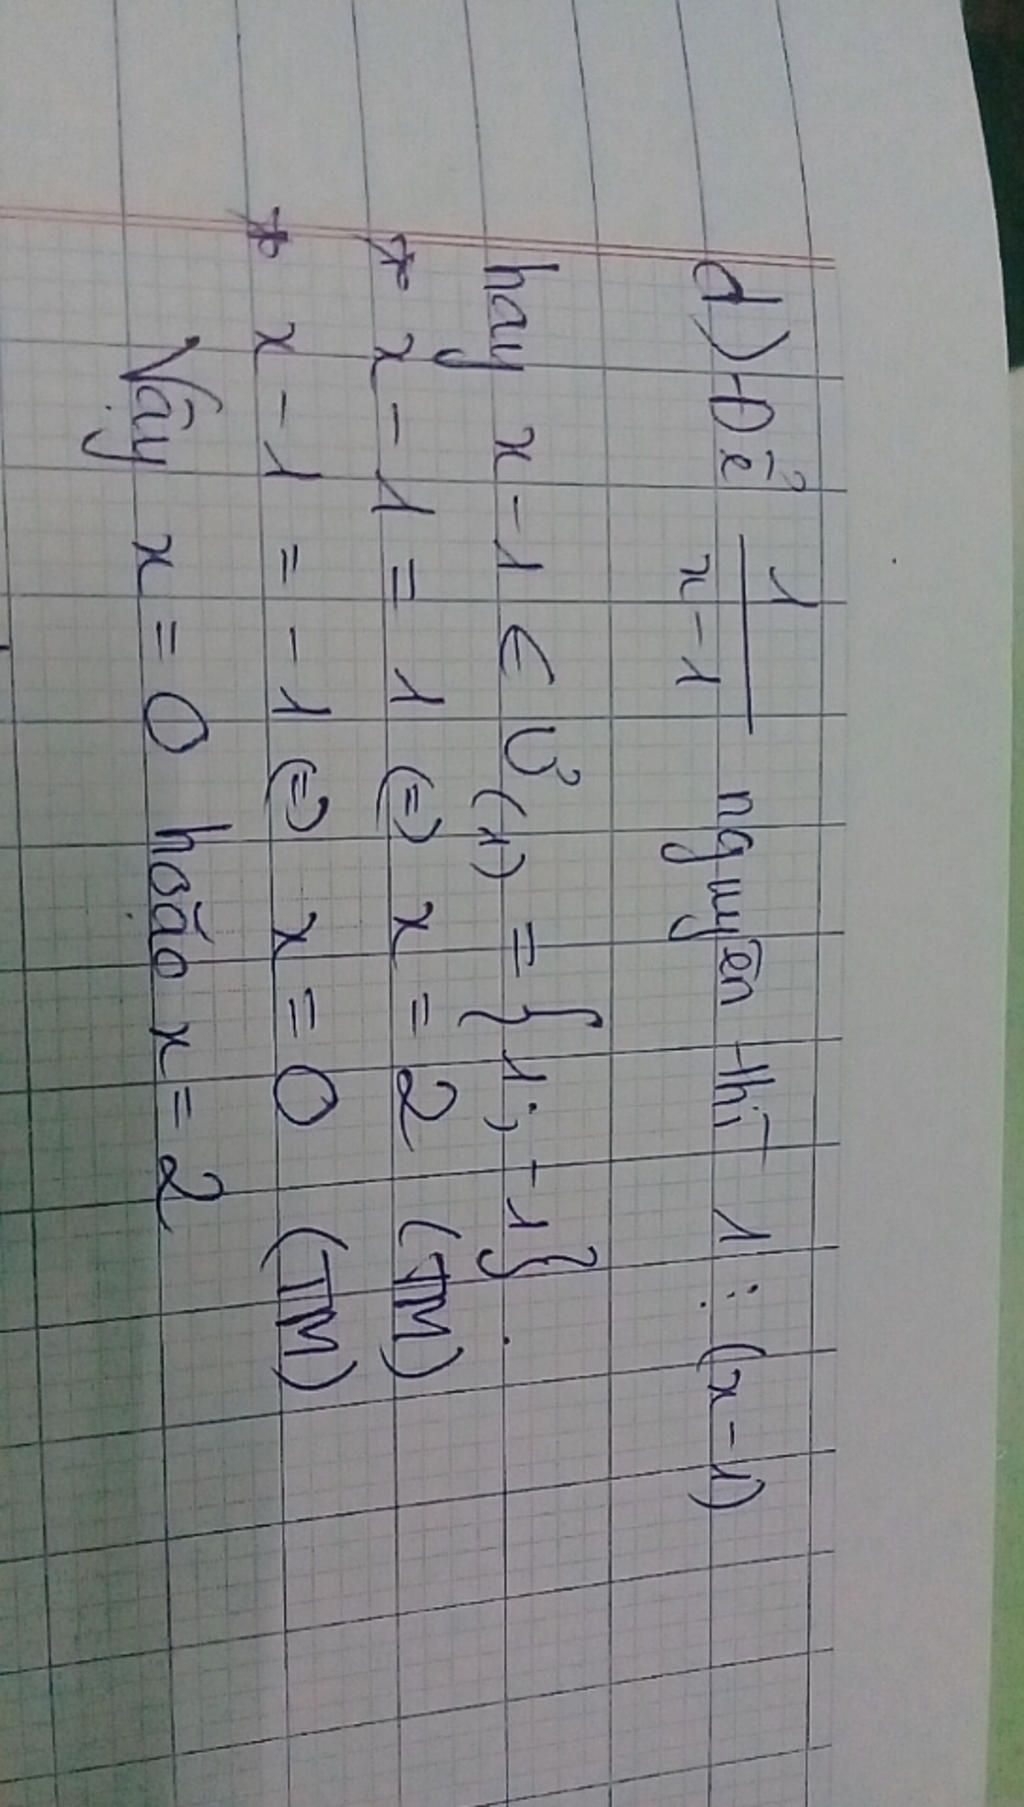 d) Để 1/(x-1) nguyên thì 1 ⋮ (x-1)
hay x-1 ∈ Ư(1) = {1; -1}.
* x-1 = 1 (=) x = 2 (TM)
* x-1 = -1 (=) x = 0 (TM)
Vậy x = 0 hoăo x = 2